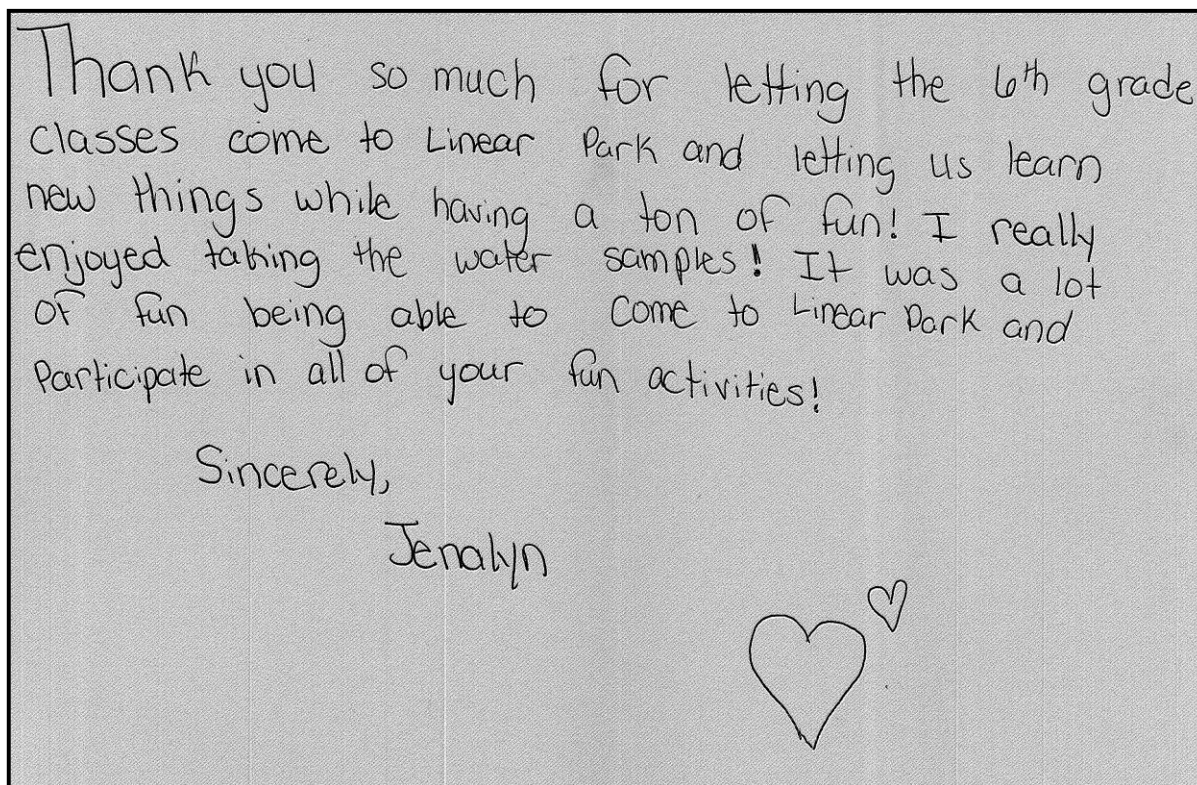 Thank you so much for letting the 6th grade
classes come to Linear Park and letting us learn
new things while having a ton of fun! I really
enjoyed taking the water samples! It was a lot
of fun being able to come to Linear Park and
Participate in all of your fun activities!
Sincerely,
Jenalyn